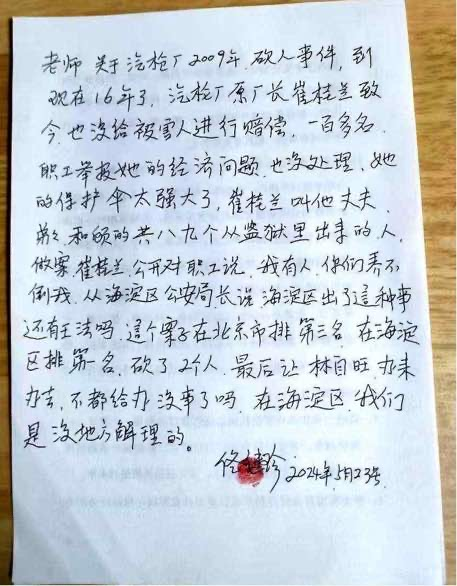 老师 关于汽枪厂2009年.砍人事件,到
现在16年了,汽枪厂原厂长崔桂兰致
今.也没给被害人进行赔偿,一百多名.
职工举报她的经济问题.也没处理.她
的保护伞太强大了,崔桂兰叫他丈夫.
弟.和顾的共八九个从监狱里出来的人,
做案.崔桂兰.公开对职工说.我有人.你们弄不
倒我.从海淀区公安局长说.海淀区出了这种事
还有王法吗.这个案子在北京市排第三名.在海淀
区排第一名,砍了2个人.最后让林自旺.办来
办去,不都给办没事了吗.在海淀区我们
是没地方解理的。
佟 珍 2024年5月23号